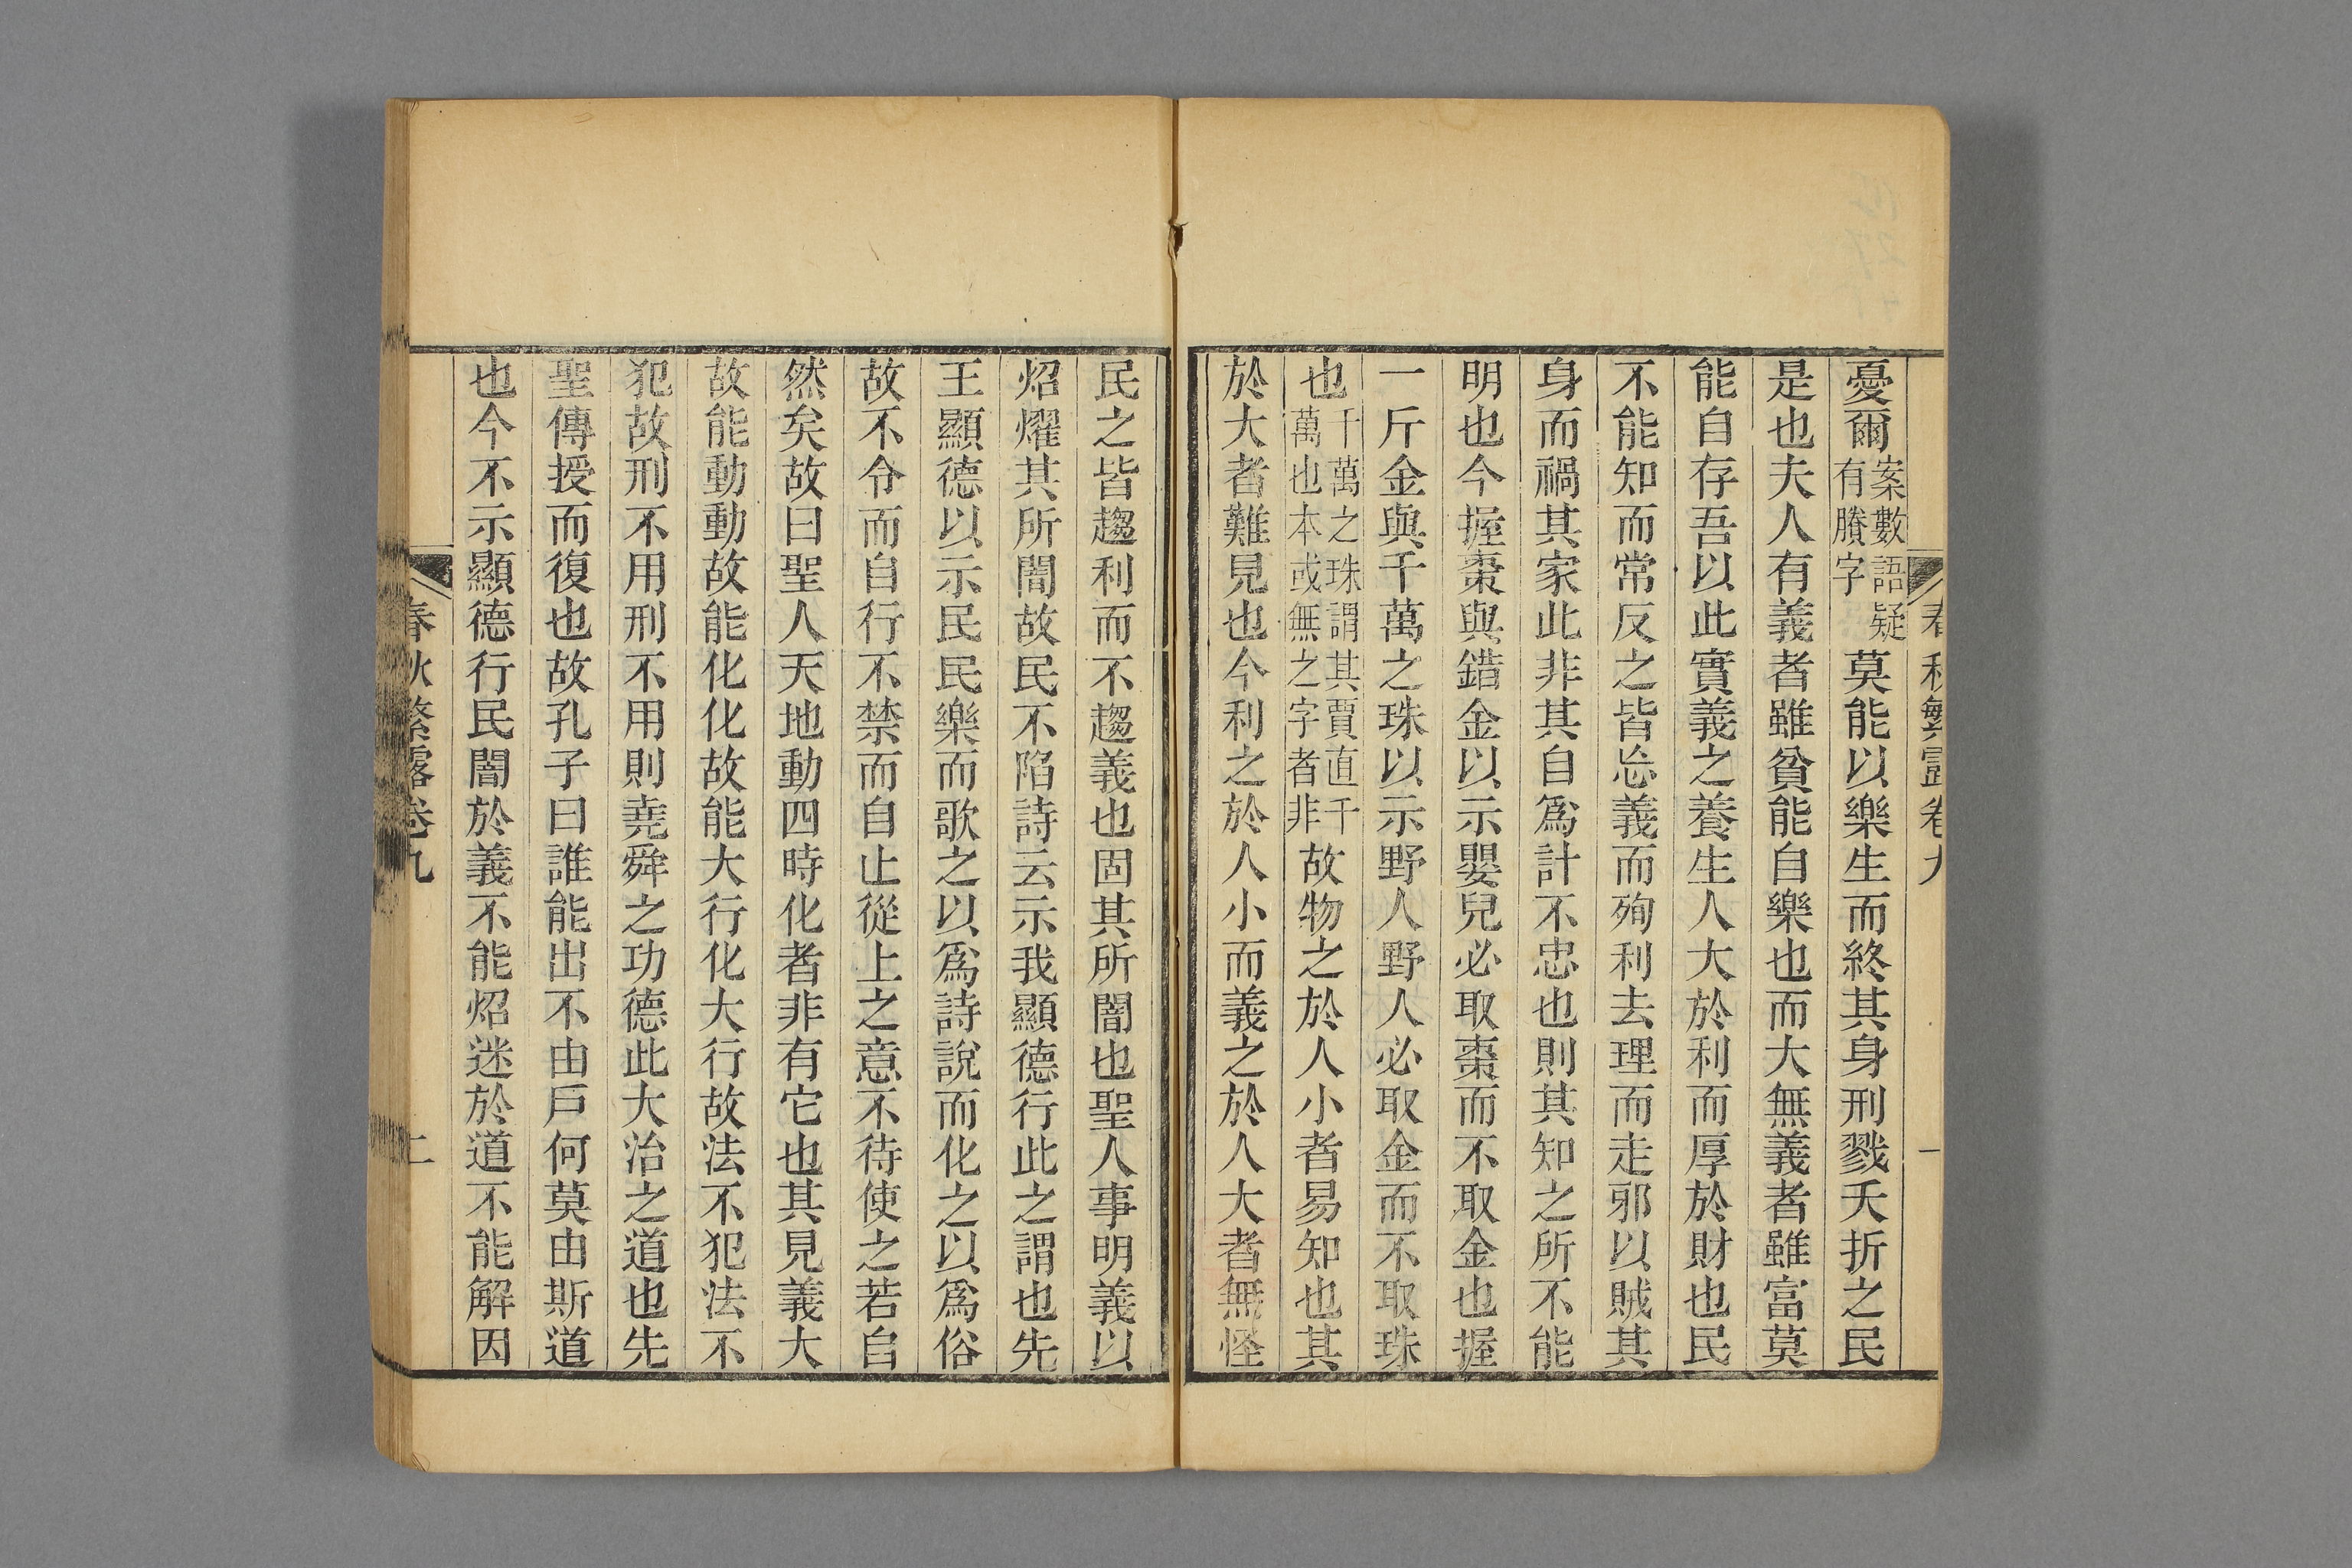 春秋繁露卷九 一
憂爾案數語疑有賸字莫能以樂生而終其身刑戮夭折之民
是也夫人有義者雖貧能自樂也而大無義者雖富莫
能自存吾以此實義之養生人大於利而厚於財也民
不能知而常反之皆忘義而殉利去理而走邪以賊其
身而禍其家此非其自爲計不忠也則其知之所不能
明也今握棗與錯金以示嬰兒必取棗而不取金也握
一斤金與千萬之珠以示野人野人必取金而不取珠
也千萬之珠謂其賈直千萬也本或無之字者非故物之於人小者易知也其
於大者難見也今利之於人小而義之於人大者無怪
民之皆趨利而不趨義也固其所闇也聖人事明義以
炤燿其所闇故民不陷詩云示我顯德行此之謂也先
王顯德以示民民樂而歌之以爲詩說而化之以爲俗
故不令而自行不禁而自止從上之意不待使之若自
然矣故曰聖人天地動四時化者非有它也其見義大
故能動動故能化化故能大行化大行故法不犯法不
犯故刑不用刑不用則堯舜之功德此大治之道也先
聖傳授而復也故孔子曰誰能出不由戶何莫由斯道
也今不示顯德行民闇於義不能炤迷於道不能解因
春秋繁露卷九 二